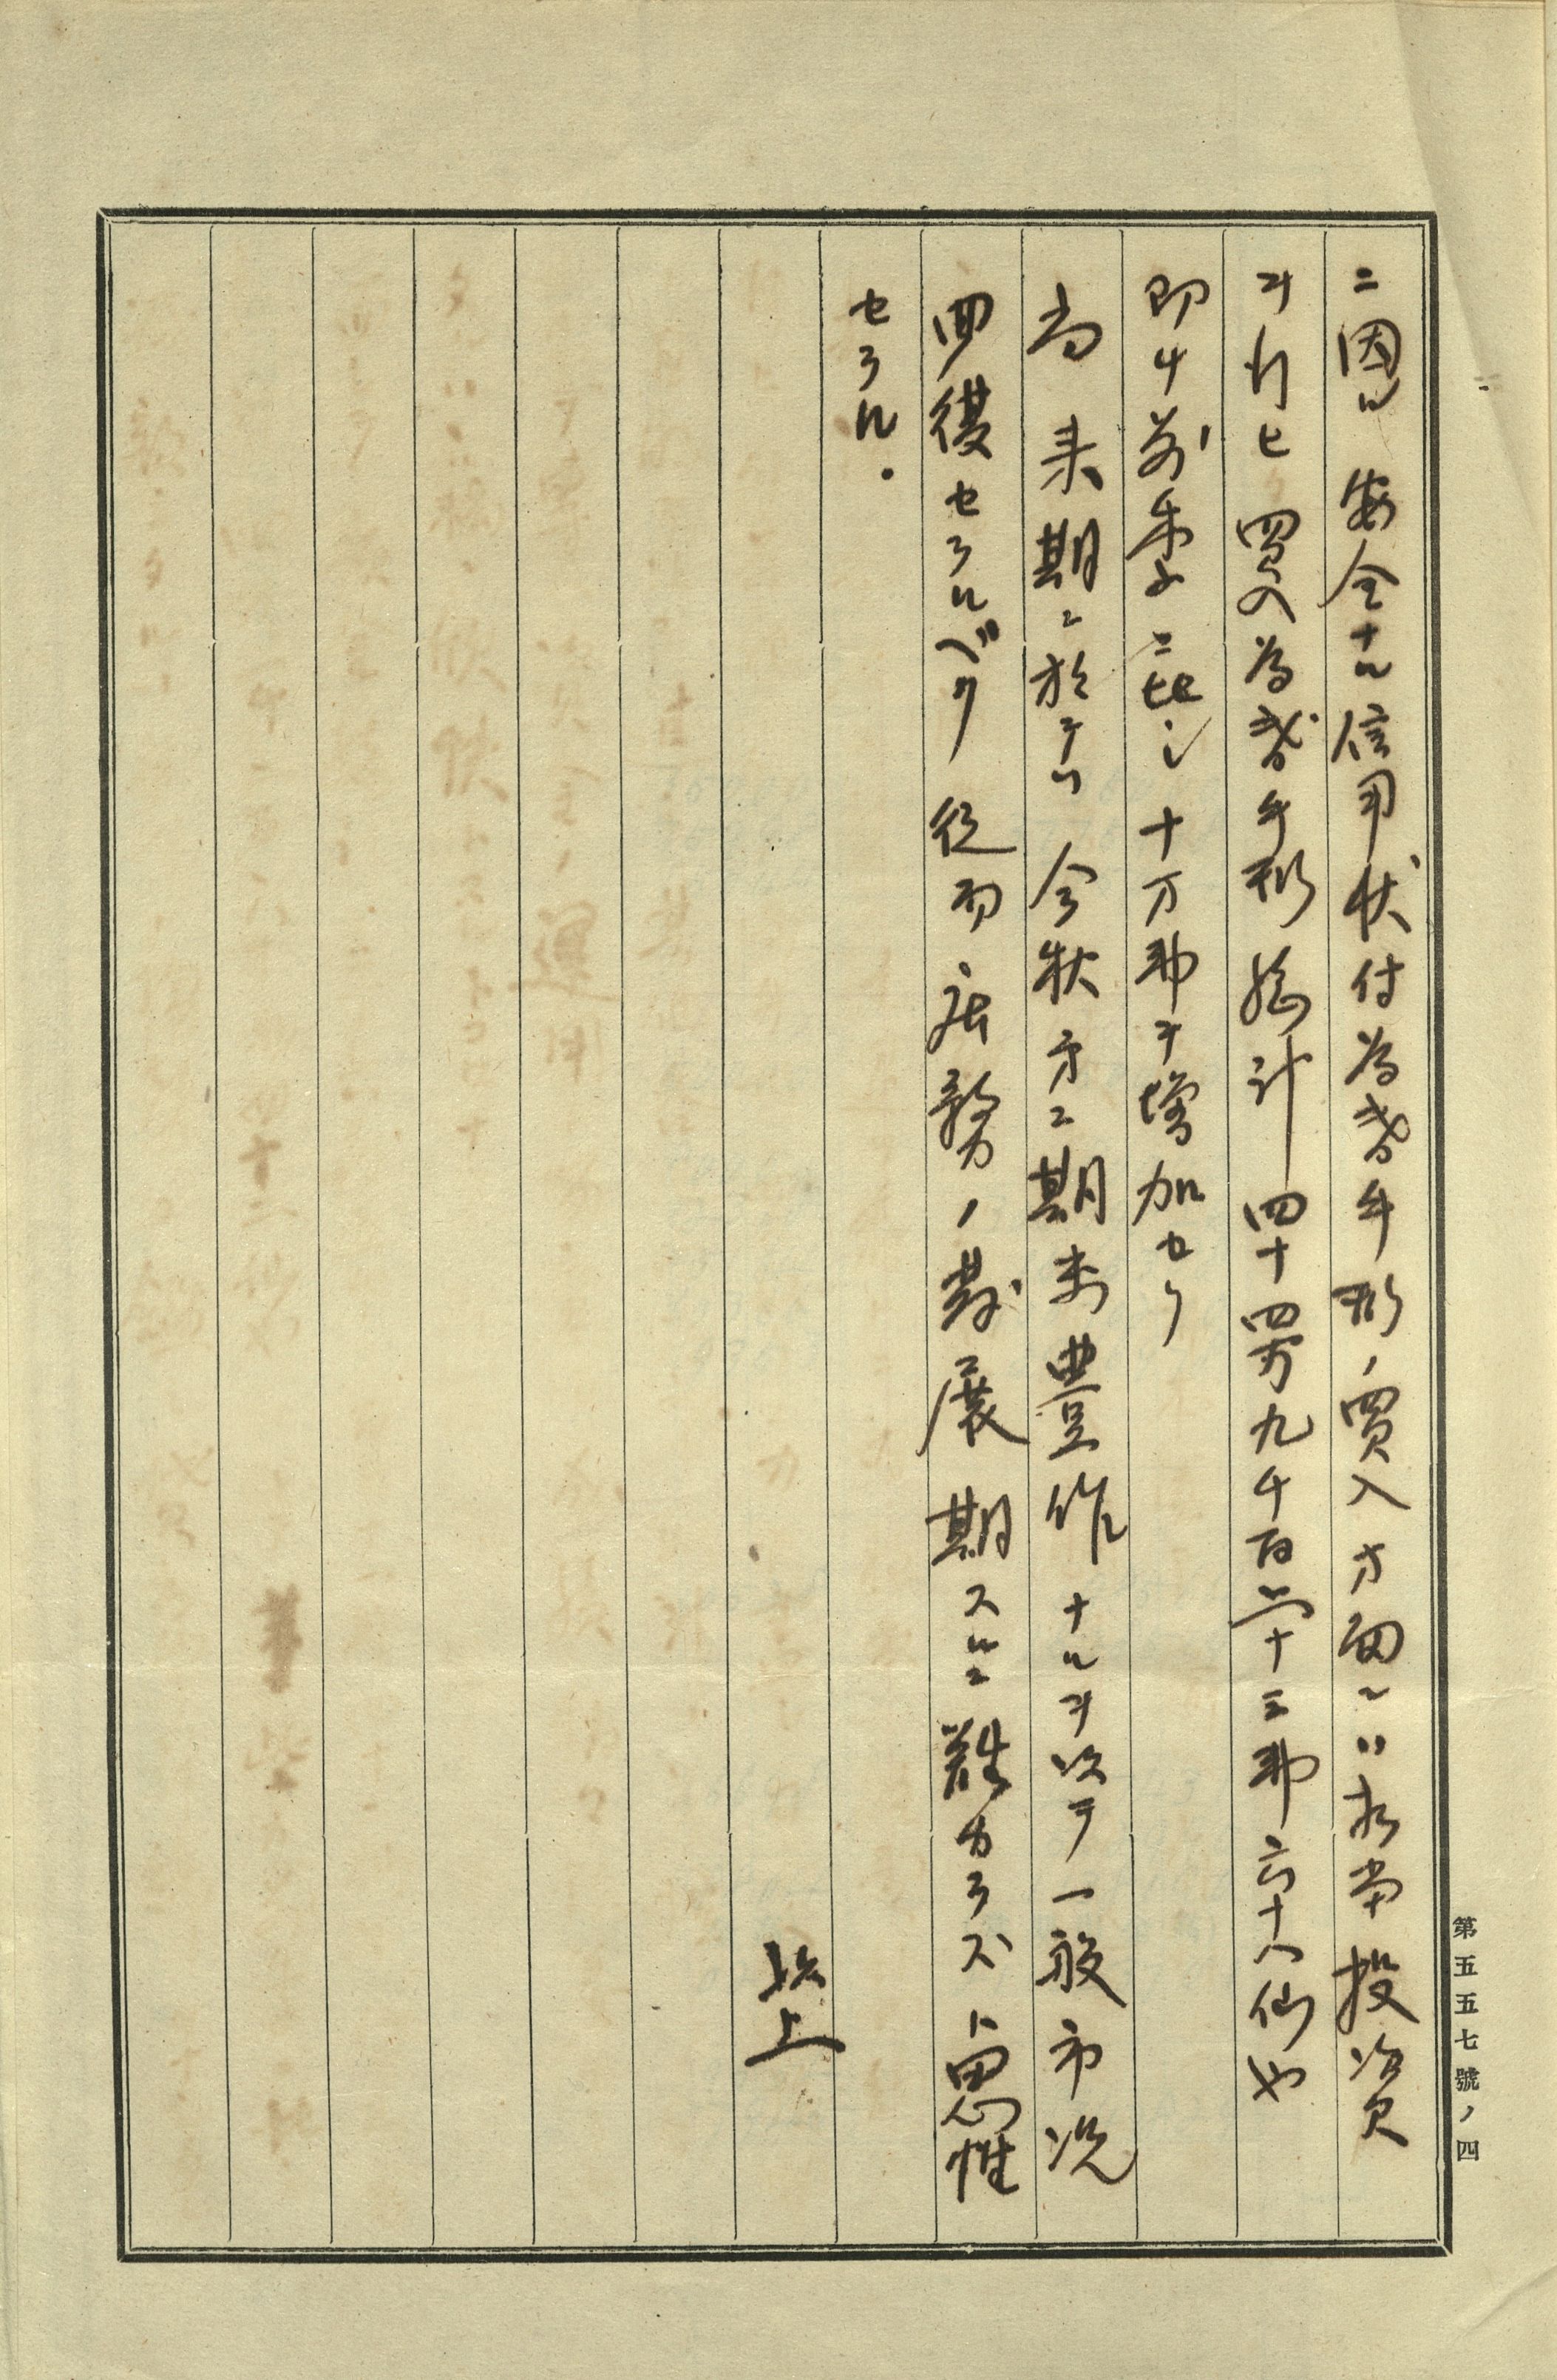 ニ因ル安全ナル信用状付為替手形ノ買入方面ニハ相当投資
ヲ行ヒ買入為替手形総計四十四万九千百六十三弗六十八仙也
即チ前季ニ比シ十万弗ヲ増加セリ
尚来期ニ於テハ今秋第二期米豊作ナルヲ以テ一般市況
回復セラルベク従而店務ノ発展期スルニ難カラズト思惟
セラル.
以上
第五五七號ノ四